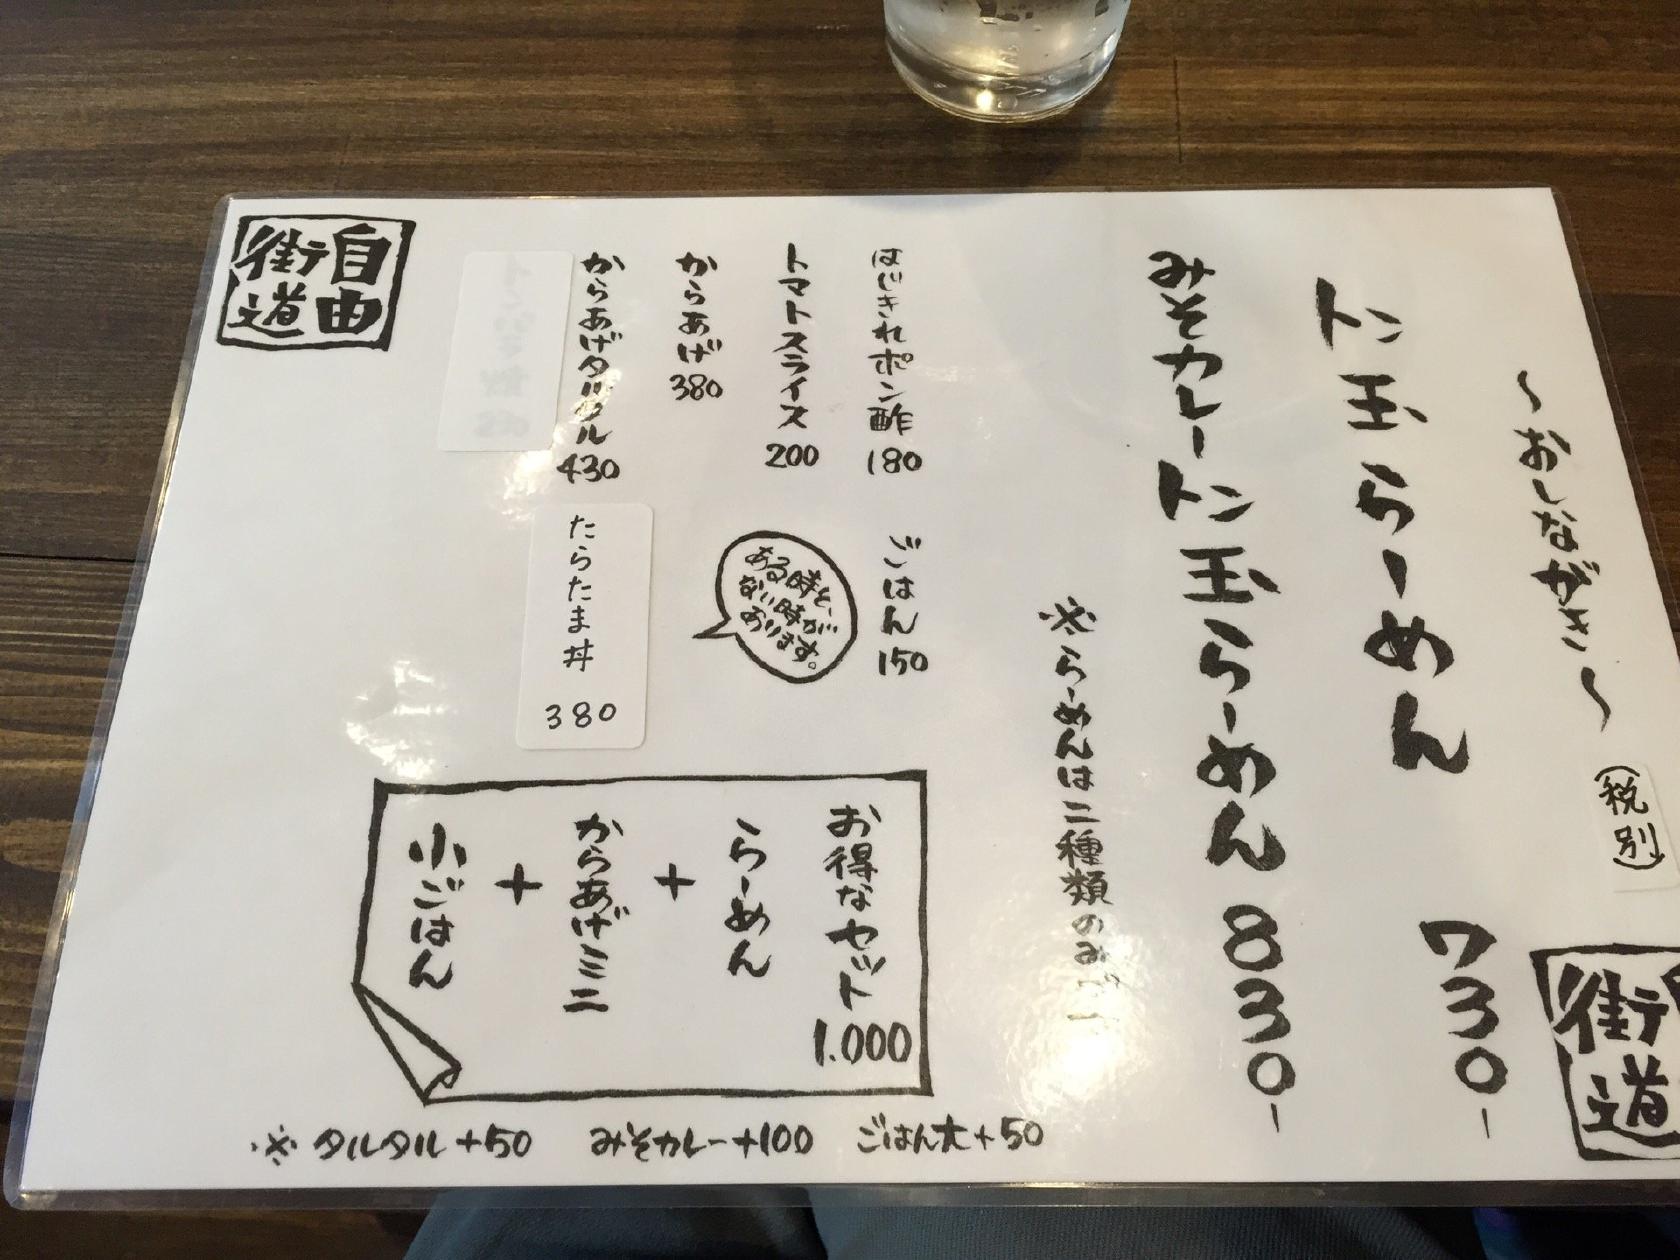 ～おしながき～
（税別）
トン玉らーめん 730-
みそカレートン玉らーめん 830-
※らーめんは二種類のみ
はじきれポン酢 180
トマトスライス 200
からあげ 380
からあげタルタル 430
ごはん 150
ある時と、
ない時が
あります。
たらたま丼 380
お得なセット 1.000
らーめん
+
からあげミニ
+
小ごはん
※ タルタル+50 みそカレー+100 ごはん大+50
自由
街道
街道